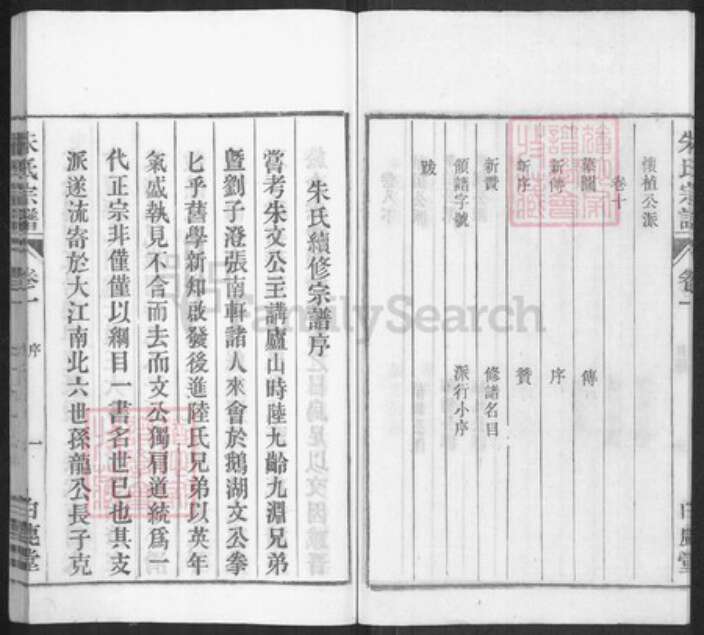 懷植公派
卷十
墓圖 傳
新傳 序
新序 贊
新贊 修譜名目
領譜字號 派行小序
跋
朱氏宗譜 卷一
朱氏續修宗譜序
嘗考朱文公主講廬山時陸九齡九淵兄弟
曁劉子澄張南軒諸人來會於鵝湖文公拳
匕乎舊學新知啟發後進陸氏兄弟以英年
氣盛執見不合而去而文公獨肩道統爲一
代正宗非僅僅以綱目一書名世已也其支
派遂流寄於大江南北六世孫龍公長子克
朱氏宗譜 卷一 序 一 白鹿堂
FamilySearch